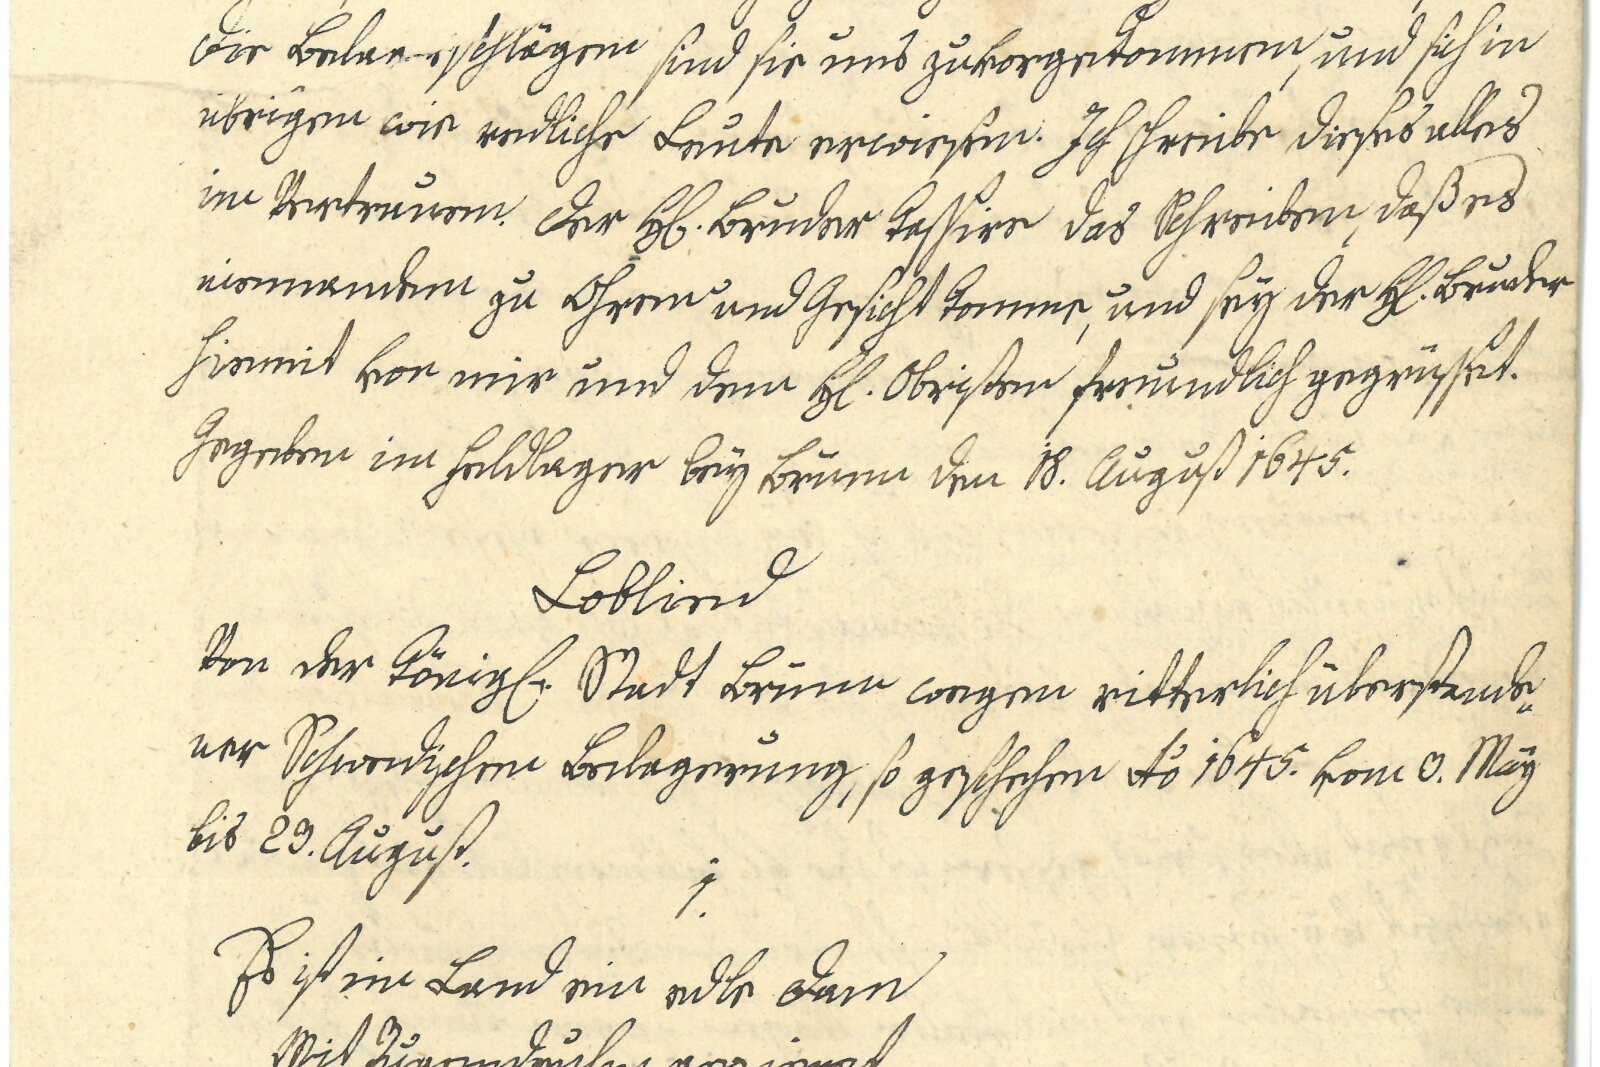 die                      sind sie uns zuvorgekommen, und sich in
übrigen wie redliche Leute erwiesen. Ich schreibe dieses alles
im Vertrauen. Der Hl. Bruder kassire das Schreiben, daß es
niemandem zu Ohren und Gesicht komme, und sey der Hl. Bruder
hiemit von mir und dem Hl. Obristen freundlich gegrüsset.
Gegeben im Feldlager bey Brünn den 18. August 1645.
Loblied
Von der Königl. Stadt Brünn wegen ritterlich überstande„
ner Schwedischen Belagerung, so geschehen Ao 1645. vom 3. Maÿ
bis 23. August.
1.
Es ist im Land ein edle Dam
Mit